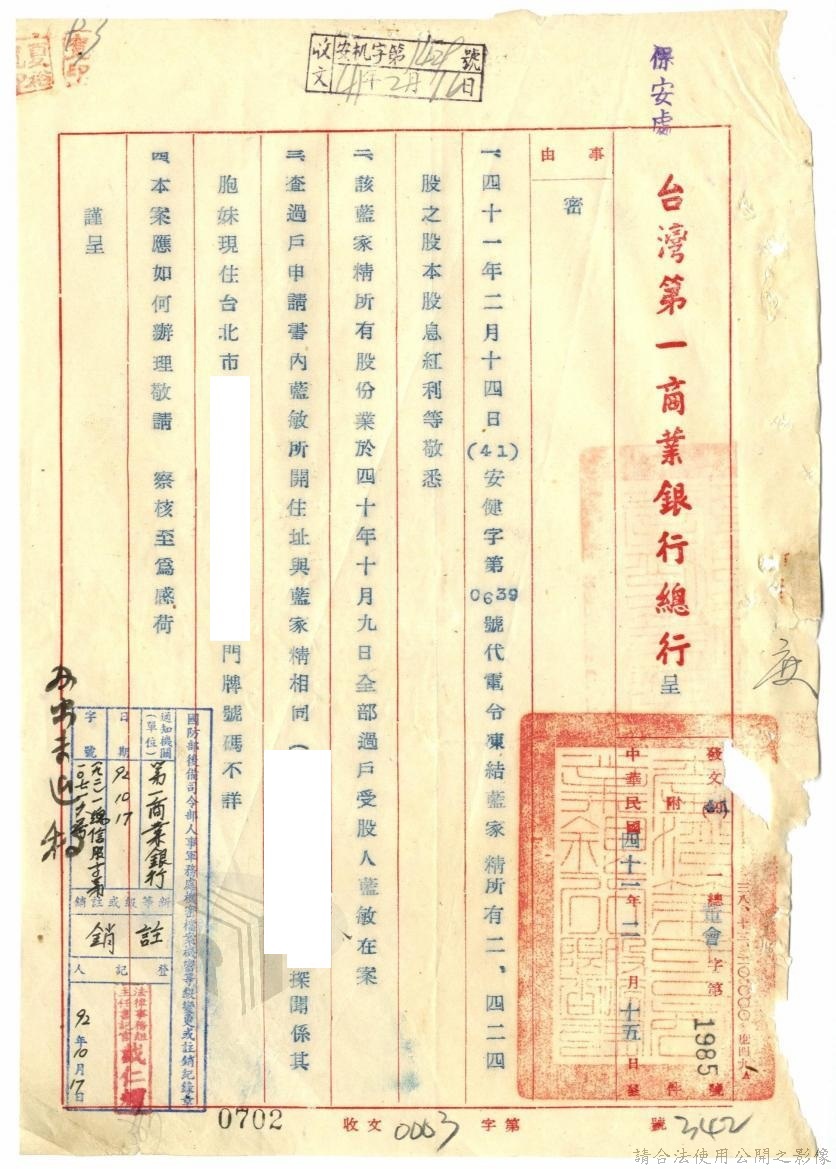 保安處
收文 安机字第1428號
41年2月16日
台灣第一商業銀行總行呈
事由
密
發文
附件
一總 會字第1985號
中華民國四十一年二月十五日呈
一、四十一年二月十四日(41)安健字第0639號代電令凍結藍家精所有二、四二四
股之股本股息紅利等敬悉
二、該藍家精所有股份業於四十年十月九日全部過戶受股人藍敏在案
三、查過戶申請書內藍敏所開住址與藍家精相同(
探聞係其
胞妹現住台北市
門牌號碼不詳
四、本案應如何辦理敬請 察核至爲感荷
謹呈
國防部後備司令部人事軍務處機密檔案機密等級變更或註銷紀錄章
通知機關(單位)
第一商業銀行
日期
92.10.17
字號
新等級或註銷
註銷
登記人
法律事務組
主任書記官
92年10月17日
0702
收文0003字第
號342
請合法使用公開之影像